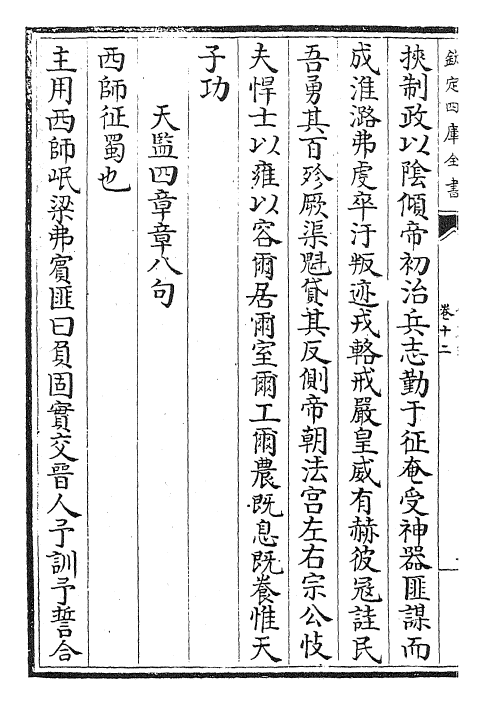 欽定四庫全書
卷十二
挾制政以陰傾帝初治兵志勤于征奄受神器匪謀而
成淮潞弗虔卒汙叛迹戎輅戒嚴皇威有赫彼冦詿民
吾勇其百殄厥渠魁貸其反側帝朝法宫左右宗公忮
夫悍士以雍以容爾居爾室爾工爾農既息既養惟天
子功
天監四章章八句
西師征蜀也
主用西師岷梁弗賓匪曰負固實交晉人予訓予誓合